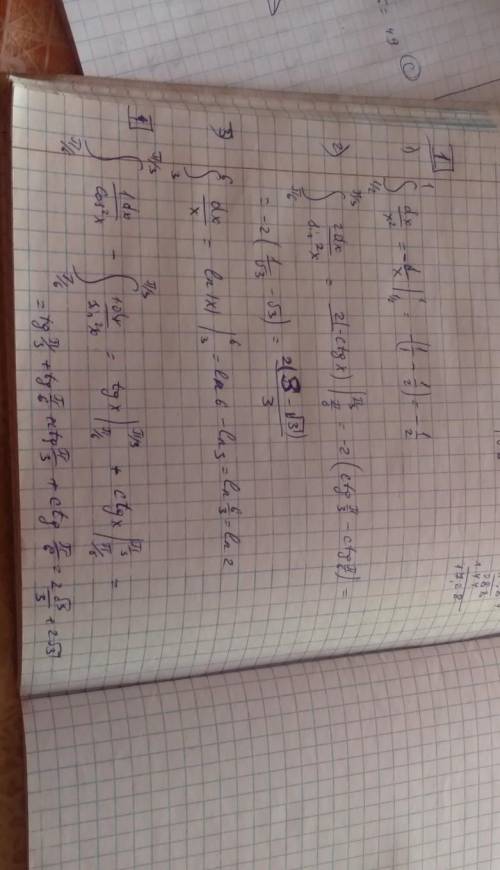 1
1) ∫_{1/2}^{1} dx/x² = -1/x |_{1/2}^{1} = -(1/1 - 1/2) = -1/2
2) ∫_{π/6}^{π/3} 2dx/sin²x = 2(-ctgx) |_{π/6}^{π/3} = -2(ctg π/3 - ctg π/6) =
= -2(1/√3 - √3) = 2(3 - √3)/3
3) ∫_{3}^{6} dx/x = ln|x| |_{3}^{6} = ln6 - ln3 = ln 6/3 = ln2
1
∫_{π/6}^{π/3} 1dx/cos²x - ∫_{π/6}^{π/3} 1dx/sin²x = tgx |_{π/6}^{π/3} + ctgx |_{π/6}^{π/3} =
= tg π/3 + tg π/6 + ctg π/3 + ctg π/6 = 2√3/3 + 2√3